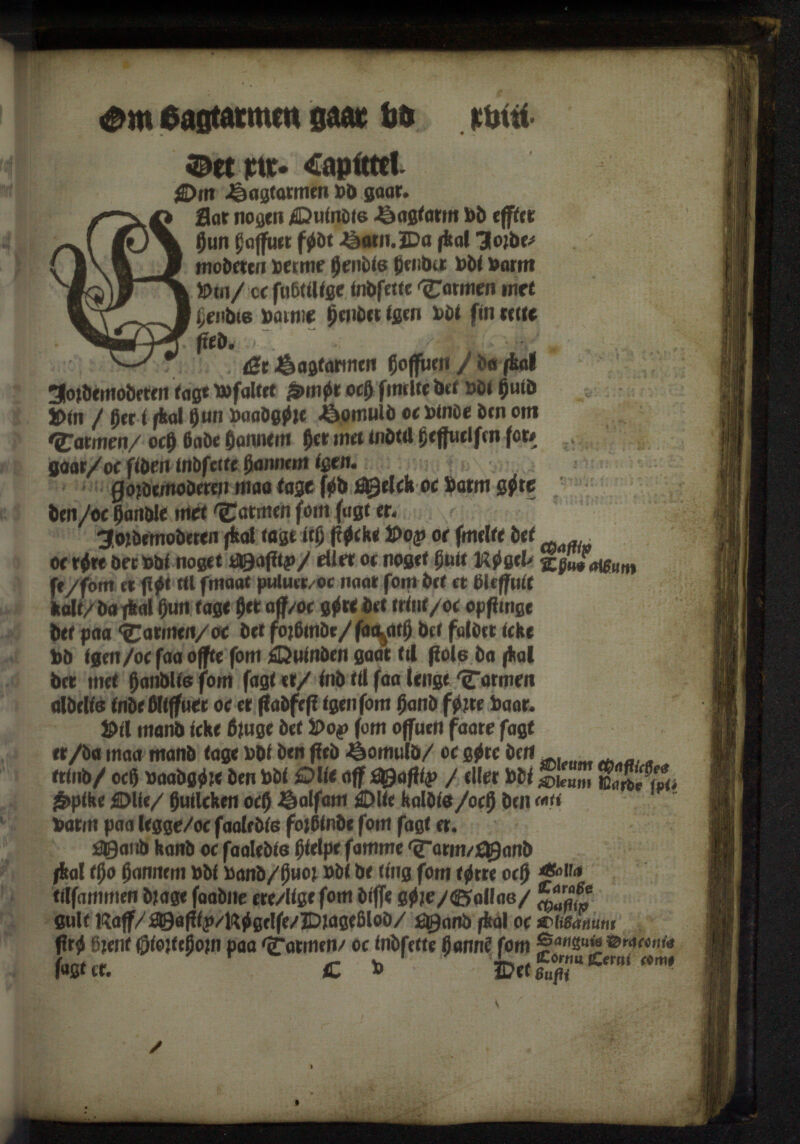 Om Bagtarmen gaar vd xviii.
Det xix. Capittel.
Om Bagtarmen vd gaar.
Naar nogen Quindis Bagtarm vd effter
hun haffuer født Barn. Da skal Jorde-
moderen verme hendis hender vdi varm
Vin / oc subtilige indsette Tarmen met
hendis varme hender igen vdi sin rette
sted.
Er Bagtarmen hoffuen / da skal
Jordemoderen tage vsaltet Smør och smelte det vdi huid
Vin / her i skal hun vaadgøre Bomuld oc vinde den om
Tarmen / och bade hannem her met indtil heffuelsen for-
gaar / oc siden indsette hannem igen.
Jordemoderen maa tage sød Melck oc varm gøre
den / oc handle met Tarmen som sagt er.
Jordemoderen skal tage ith støcke Vox oc smelte det
oc røre der vdi noget Mastix / eller oc noget huit Røgel-
se / som er støt til smaat puluer / oc naar som det er bleffuit
kalt / da skal hun tage her aff / oc gøre det trint / oc opstinge
det paa Tarmen / oc det forbinde / saa ath det falder icke
vd igen / oc saa offte som Quinden gaar til stols da skal
der met handlis som sagt er / ind til saa lenge Tarmen
aldelis inde bliffuer oc er stadfest igen som hand førre vaar.
Vil mand icke bruge det Vox som offuen faare sagt
er / da maa mand tage vdi den sted Bomuld / oc gøre den
trind / och vaadgøre den vdi Olie aff Mastix / eller vdi
Spike Olie / huilcken och Balsam Olie kaldis / och den
varm paa legge / oc saaledis forbinde som sagt er.
Mand kand oc saaledis hielpe samme Tarm / Mand
skal tho hannem vdi vand / huor vdi de ting som tørre och
tilsammen drage saadne ere / lige som disse gøre / Gallas /
gult Raff / Mastix / Røgelse / Drageblod / Mand skal oc
strø brent Hiortehorn paa Tarmen / oc indsette hannē som
sagt er.
C v
Det
Mastix
Thus album
Oleum Masticbea
Oleum Narde spi-
cati
Golla
Carabe
Mastix
Olibanum
Sanguis Draconis
Cornu Cerui com-
busti